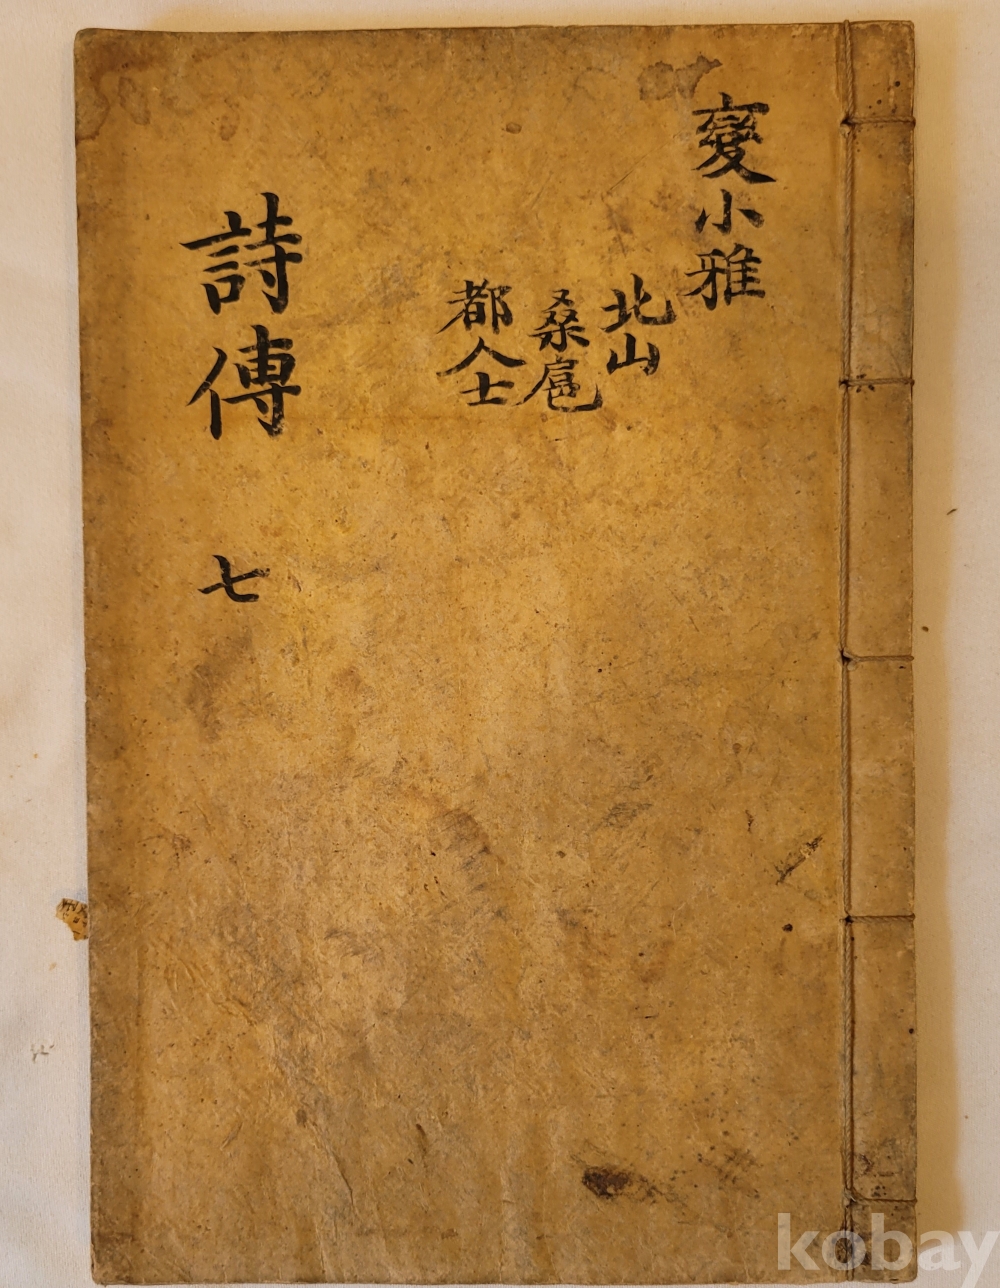 變小雅
北山
桑扈
都人士
詩傳
七
kobay